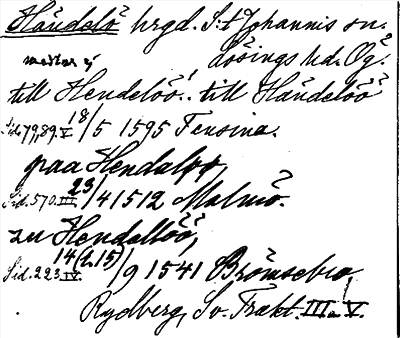 Händelö hrgd. S:t Johannis sn.
Lösings hd. Ög.
till Hendelöö.. till Händelöö
Sid. 79,89. V 18/5 1595 Tensina.
paa Hendaløø,
Sid. 570. III. 23/4 1512 Malmö.
zu Hendalløö,
Sid. 223. IV. 14(l.15)/9 1541 Brömsebro,
Rydberg, Sv. Trakt. III-V.